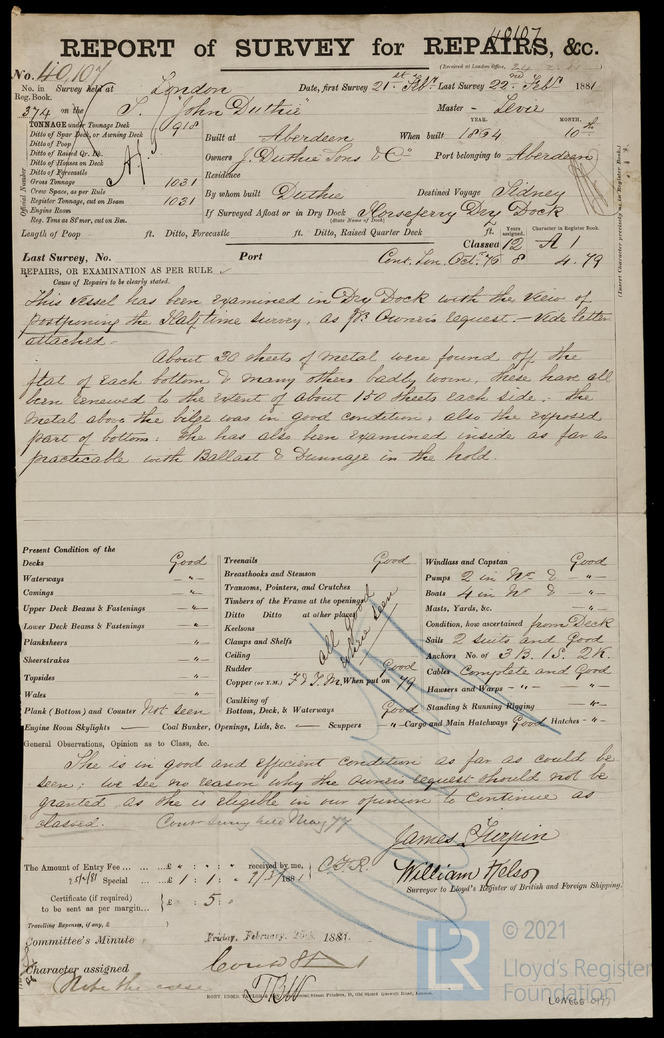 40107
REPORT of SURVEY for REPAIRS, &c.
(Received at London Office,
No. 40,107
No. in Reg. Book. Survey held at London Date, first Survey 21st Feby. Last Survey 22nd Feby 1881
374 on the S. "John Duthie" Master - Levie
TONNAGE under Tonnage Deck 918
YEAR. MONTH.
Ditto of Spar Deck, or Awning Deck
Built at Aberdeen When built 1864 10th
Ditto of Poop
Ditto of Raised Qr. Dk.
Owners J. Duthie Sons & Co Port belonging to Aberdeen
Ditto of Houses on Deck
Ditto of Forecastle
Residence
Gross Tonnage 1031
Crew Space, as per Rule
By whom built Duthie Destined Voyage Sidney
Register Tonnage, cut on Beam 1031
Engine Room
If Surveyed Afloat or in Dry Dock Horseferry Dry Dock
(State Name of Dock)
Reg. Tons as St'mer, cut on Bm.
Official Number
Length of Poop ft. Ditto, Forecastle ft. Ditto, Raised Quarter Deck ft.
Years assigned. Character in Register Book.
Classed 12 A 1
Last Survey, No. Port Cont. Lon. Oct. 76 8 4.79
REPAIRS, OR EXAMINATION AS PER RULE
Cause of Repairs to be clearly stated.
This vessel has been examined in Dry Dock with the view of
postponing the Half time survey, as pr. Owners request. - Vide letter
attached.
About 30 sheets of metal were found off the
flat of each bottom & many others badly worn, these have all
been renewed to the extent of about 150 sheets each side. The
metal above the bilge was in good condition, also the exposed
part of bottom: She has also been examined inside as far as
practicable with Ballast & Dunnage in the hold.
Present Condition of the
Decks Good
Waterways -"-
Comings -"-
Upper Deck Beams & Fastenings -"-
Lower Deck Beams & Fastenings -"-
Planksheers -"-
Sheerstrakes -"-
Topsides -"-
Wales -"-
Plank (Bottom) and Counter Not seen
Treenails Good
Breasthooks and Stemson
Transoms, Pointers, and Crutches
Timbers of the Frame at the openings
Ditto Ditto at other places
Keelsons
Clamps and Shelfs
Ceiling
all good where seen
Rudder Good
Copper (or Y.M.) F & Y.M. When put on 79
Caulking of Bottom, Deck, & Waterways Good
Windlass and Capstan Good
Pumps 2 in No. & -"-
Boats 4 in No. & -"-
Masts, Yards, &c. -"-
Condition, how ascertained from Deck
Sails 2 suits and Good
Anchors No. of 3 B. 1 S. 2 K.
Cables Complete and Good
Hawsers and Warps -"- -"-
Standing & Running Rigging -"-
Engine Room Skylights — Coal Bunker, Openings, Lids, &c. — Scuppers -"- Cargo and Main Hatchways Good Hatches -"-
General Observations, Opinion as to Class, &c.
She is in good and efficient condition as far as could be
seen; we see no reason why the owners request should not be
granted, as she is eligible in our opinion to continue as
classed. Cont. Survey held May 77
James Turpin
William Nelson
Surveyor to Lloyd's Register of British and Foreign Shipping.
The Amount of Entry Fee ... £ " : " : " received by me,
25/2/81 Special ... £ 1 : 1 : " 1881
Certificate (if required) to be sent as per margin... £ : 5 : "
Travelling Expenses, if any, £
Committee's Minute Friday, February 25th 1881.
Character assigned
Note the case
© 2021
LR
Lloyd's Register
Foundation